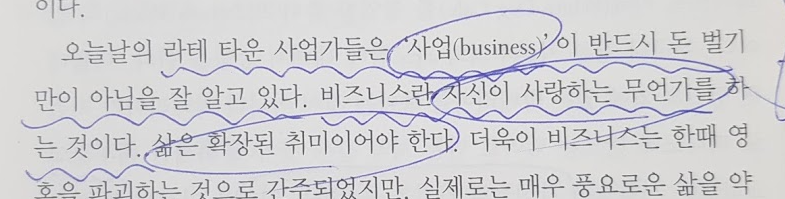 이다.
오늘날의 라테 타운 사업가들은 ‘사업(business)’이 반드시 돈 벌기
만이 아님을 잘 알고 있다. 비즈니스란 자신이 사랑하는 무언가를 하
는 것이다. 삶은 확장된 취미이어야 한다. 더욱이 비즈니스는 한때 영
혼을 파괴하는 것으로 간주되었지만, 실제로는 매우 풍요로운 삶을 약